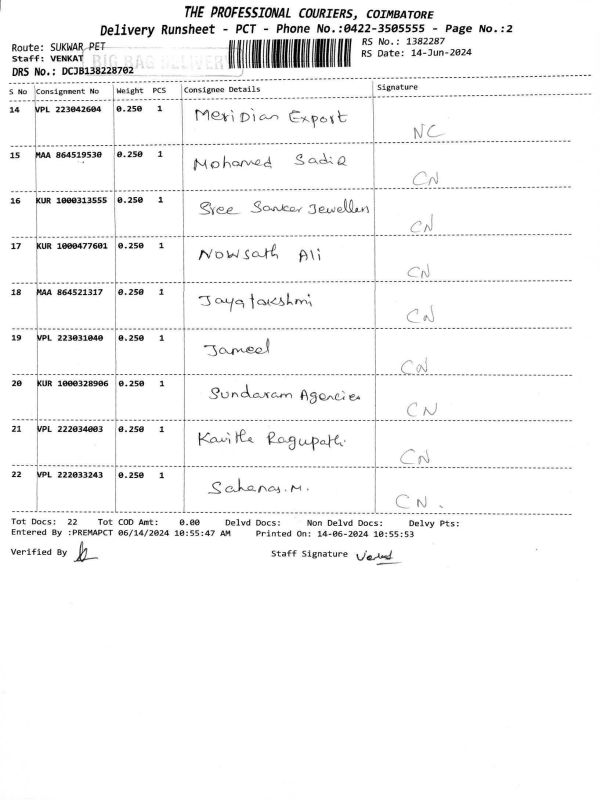 THE PROFESSIONAL COURIERS, COIMBATORE
Delivery Runsheet - PCT - Phone No.:0422-3505555 - Page No.:2
Route: SUKWAR PET
RS No.: 1382287
Staff: VENKAT
BIG BAG DELIVERY
RS Date: 14-Jun-2024
DRS No.: DCJB138228702
S No Consignment No Weight PCS Consignee Details Signature
14 VPL 223042604 0.250 1 Meridian Export NC
15 MAA 864519530 0.250 1 Mohamed Sadiq CN
16 KUR 1000313555 0.250 1 Sree Sanker Jewellers CN
17 KUR 1000477601 0.250 1 Nowsath Ali CN
18 MAA 864521317 0.250 1 Jayalakshmi CN
19 VPL 223031040 0.250 1 Jameel CN
20 KUR 1000328906 0.250 1 Sundaram Agencies CN
21 VPL 222034003 0.250 1 Kavitha Ragupathi CN
22 VPL 222033243 0.250 1 Sahanas.M. CN.
Tot Docs: 22 Tot COD Amt: 0.00 Delvd Docs: Non Delvd Docs: Delvy Pts:
Entered By :PREMAPCT 06/14/2024 10:55:47 AM Printed On: 14-06-2024 10:55:53
Verified By Staff Signature